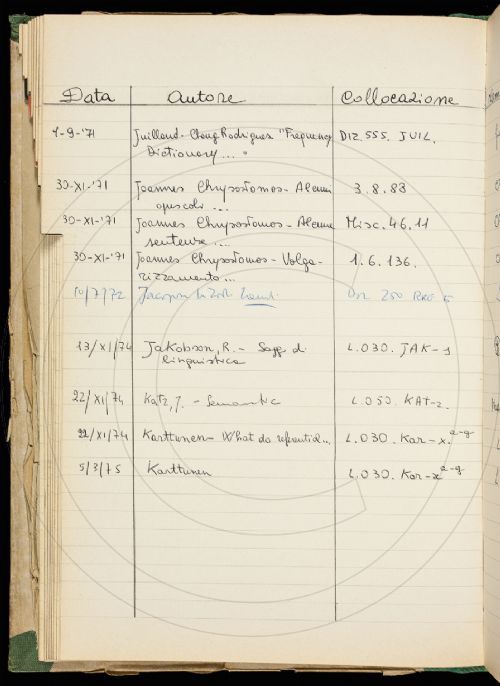 Data Autore Collocazione
1-9-'71 Juilland-Chang Rodriguez "Frequency DIZ 555. JUIL.
Dictionary ...
30-XI-'71 Joannes Chrysostomos - Alcuni 3.8.83
opuscoli ...
30-XI-'71 Joannes Chrysostomos - Alcune Misc. 46.11
sentenze ...
30-XI-'71 Joannes Chrysostomos - Volga- 1.6.136.
rizzamento ...
10/7/72 Jacopone
13/XI/74 Jakobson, R. - Saggi di L.030. JAK-1
linguistica
22/XI/74 Katz, J. - Semantic L.030. KAT-2.
22/XI/74 Karttunen - What do referential... L.030. Kar-x. a-g
5/3/75 Karttunen L.030. Kar-x a-g